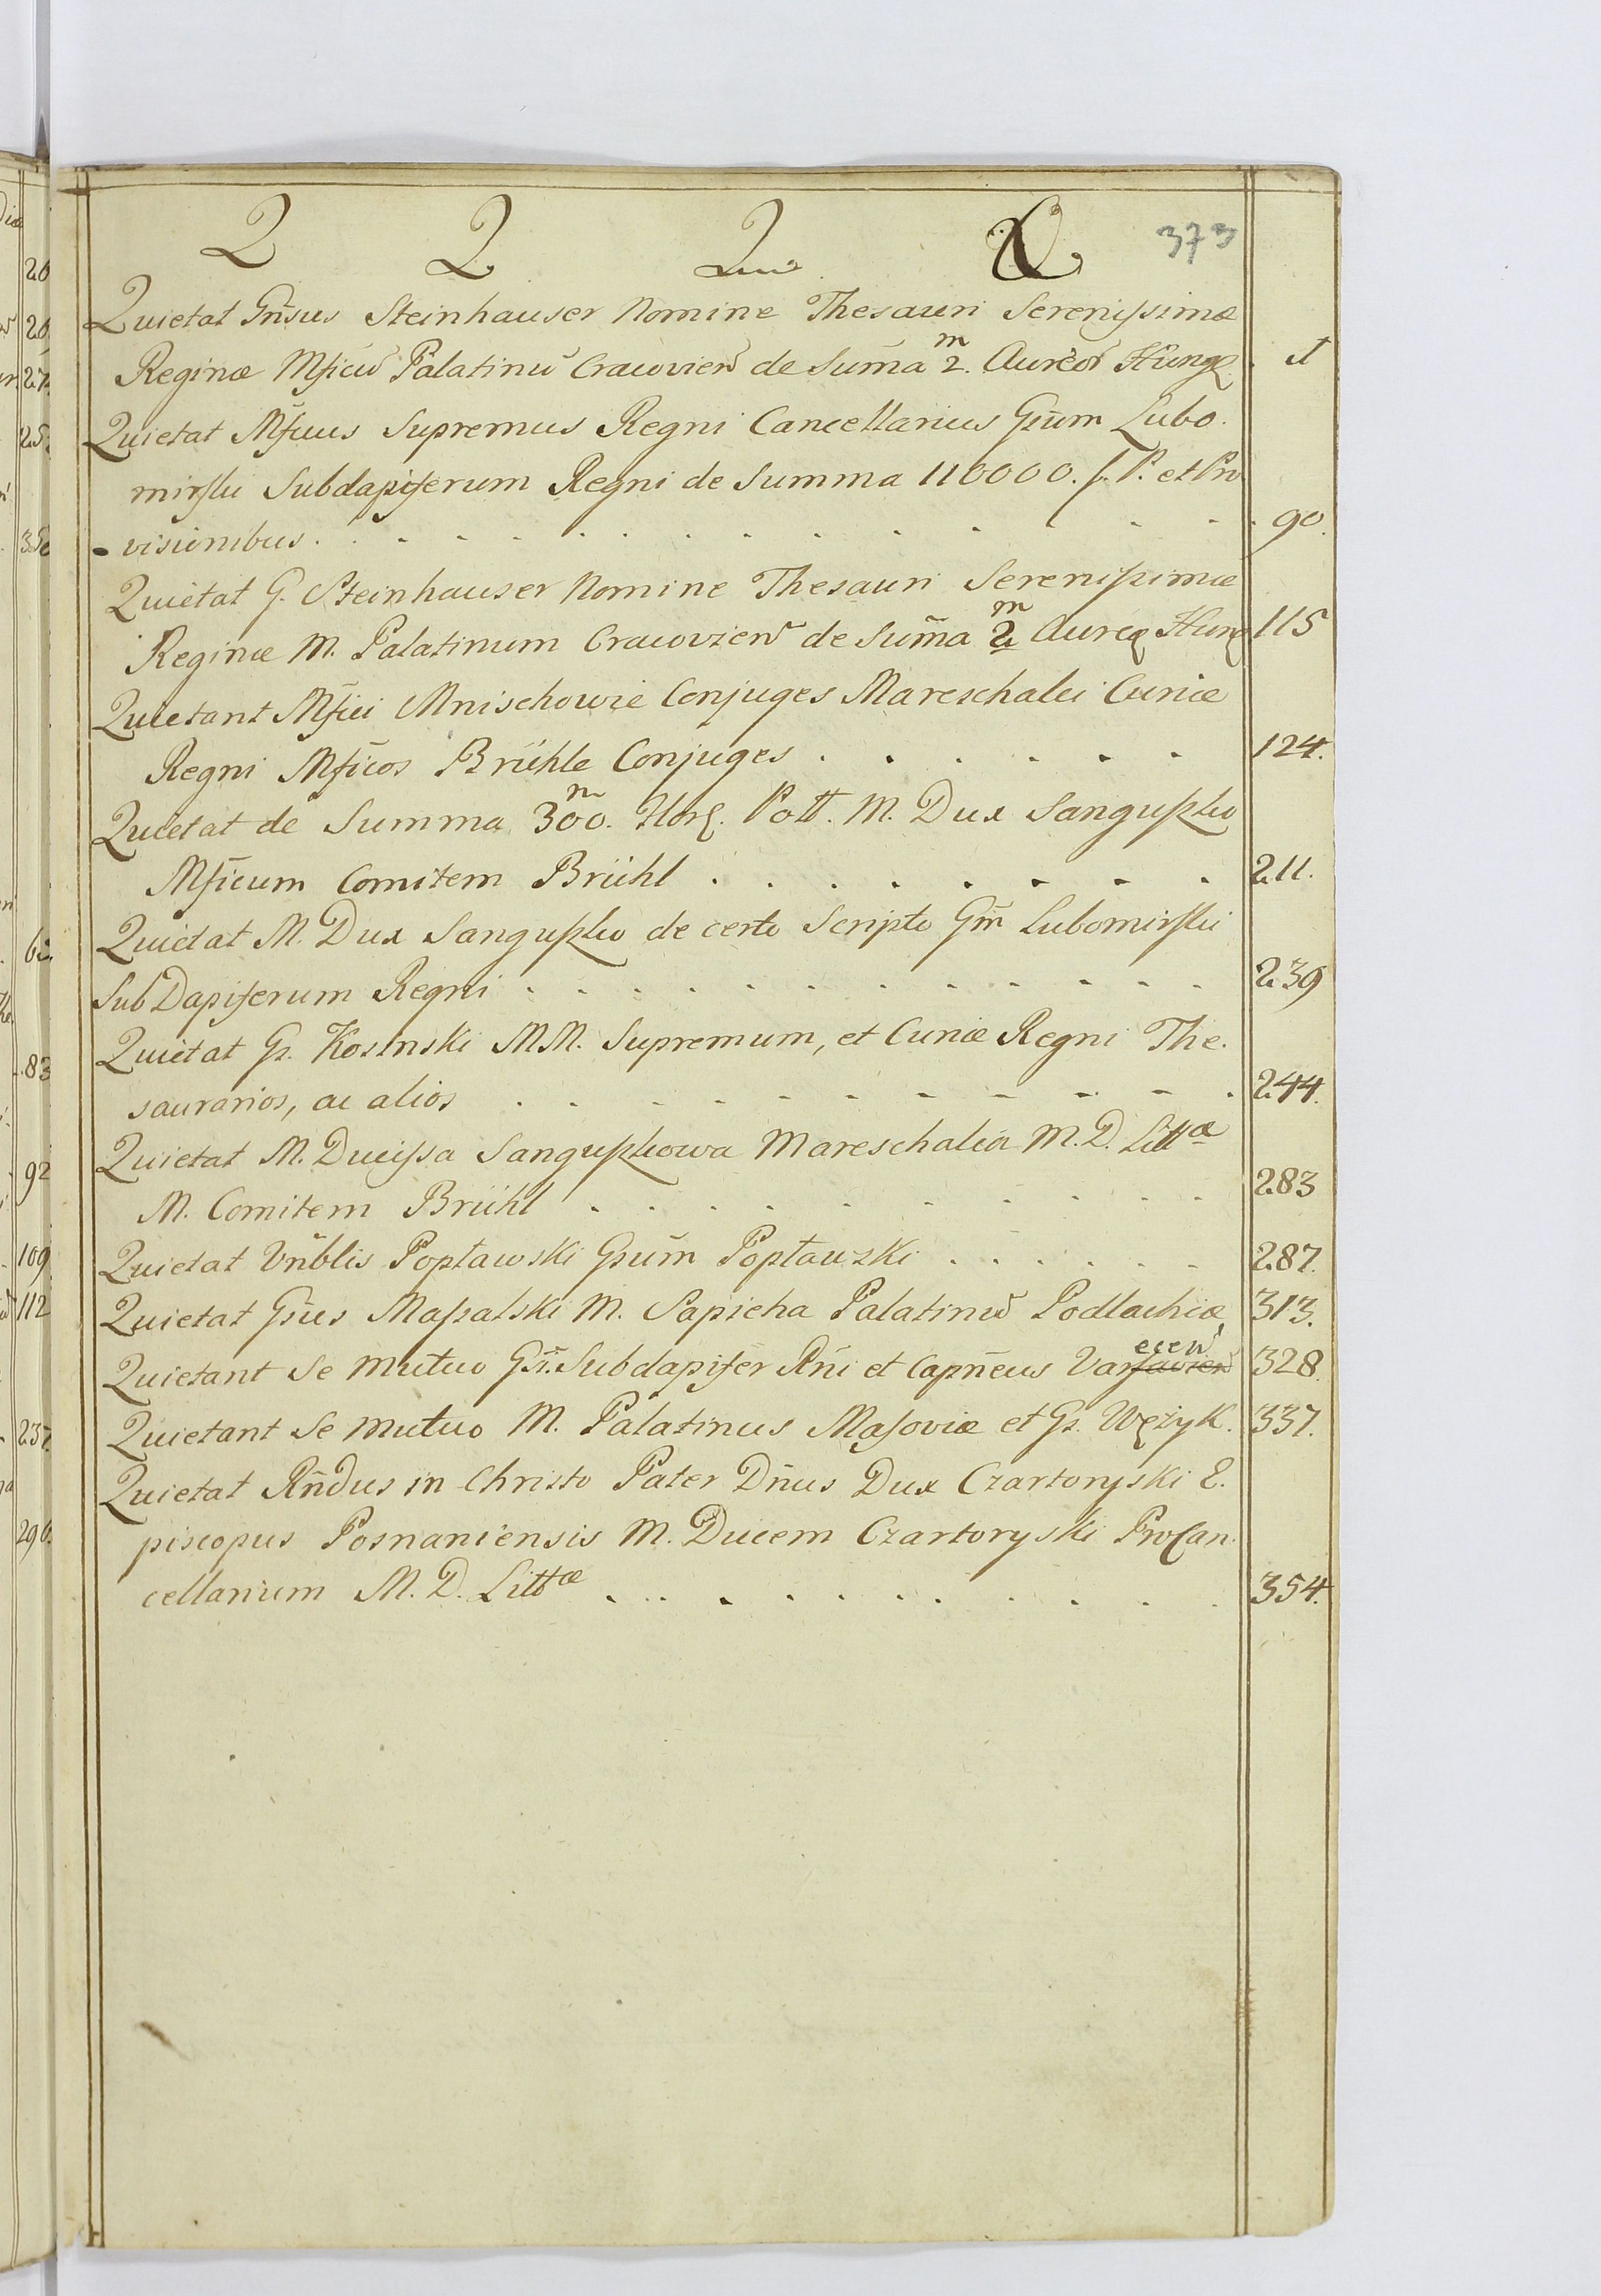 Q Q Q Q 373
Quietat Gn̄sus Steinhauser Nomine Thesauri Serenissimæ
Reginæ Mficū Palatinū Cracovien̄ de Sum̄a 2.m Aureor Hung. 1
Quietat Mficus Supremus Regni Cancellarius Gsum Lubo.
mirski Subdapiferum Regni de Summa 110000. f. P. et Pro
visionibus . . . . . . . . . . . . 90.
Quietat G. Steinhauser Nomine Thesauri Serenissimæ
Reginæ M. Palatinum Cracovien̄ de Sum̄a 2m Aureor Hung 115
Quietant Mfici Mnischowie Conjuges Mareschalci Curiæ
Regni Mficos Brühle Conjuges . . . . . . 124.
Quietat de Summa 300.m Flor. Poll. M. Dux Sanguszko
Mficum Comitem Brühl . . . . . . . . 211.
Quietat M. Dux Sanguszko de certo Scripto Gm̄ Lubomirski
SubDapiferum Regni . . . . . . . . . . . 239
Quietat Gs. Kosinski MM. Supremum, et Curiæ Regni The.
saurarios, ac alios . . . . . . . . . . . 244.
Quietat M. Ducissa Sanguszkowa Mareschalca M. D. Littæ
M. Comitem Brühl . . . . . . . . . 283
Quietat Vn̄blis Popławski Gsum̄ Popławzki . . . . . . 287.
Quietat Gsus Massalski M. Sapieha Palatinū Podlachiæ 313.
Quietant Se mutuo Gsi. Subdapifer Rn̄i et Capn̄eus Varsavien̄ ecen̄ 328.
Quietant Se mutuo M. Palatinus Masoviæ et Gs. Wężyk. 337.
Quietat Rn̄dus in Christo Pater Dn̄us Dux Czartoryski E.
piscopus Posnaniensis M. Ducem Czartoryski ProCan.
cellarium M. D. Littæ . . . . . . . . . . 354.